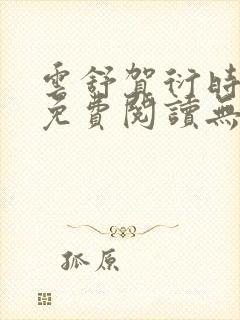 雲舒賀衍時
免費閱讀無
孤原